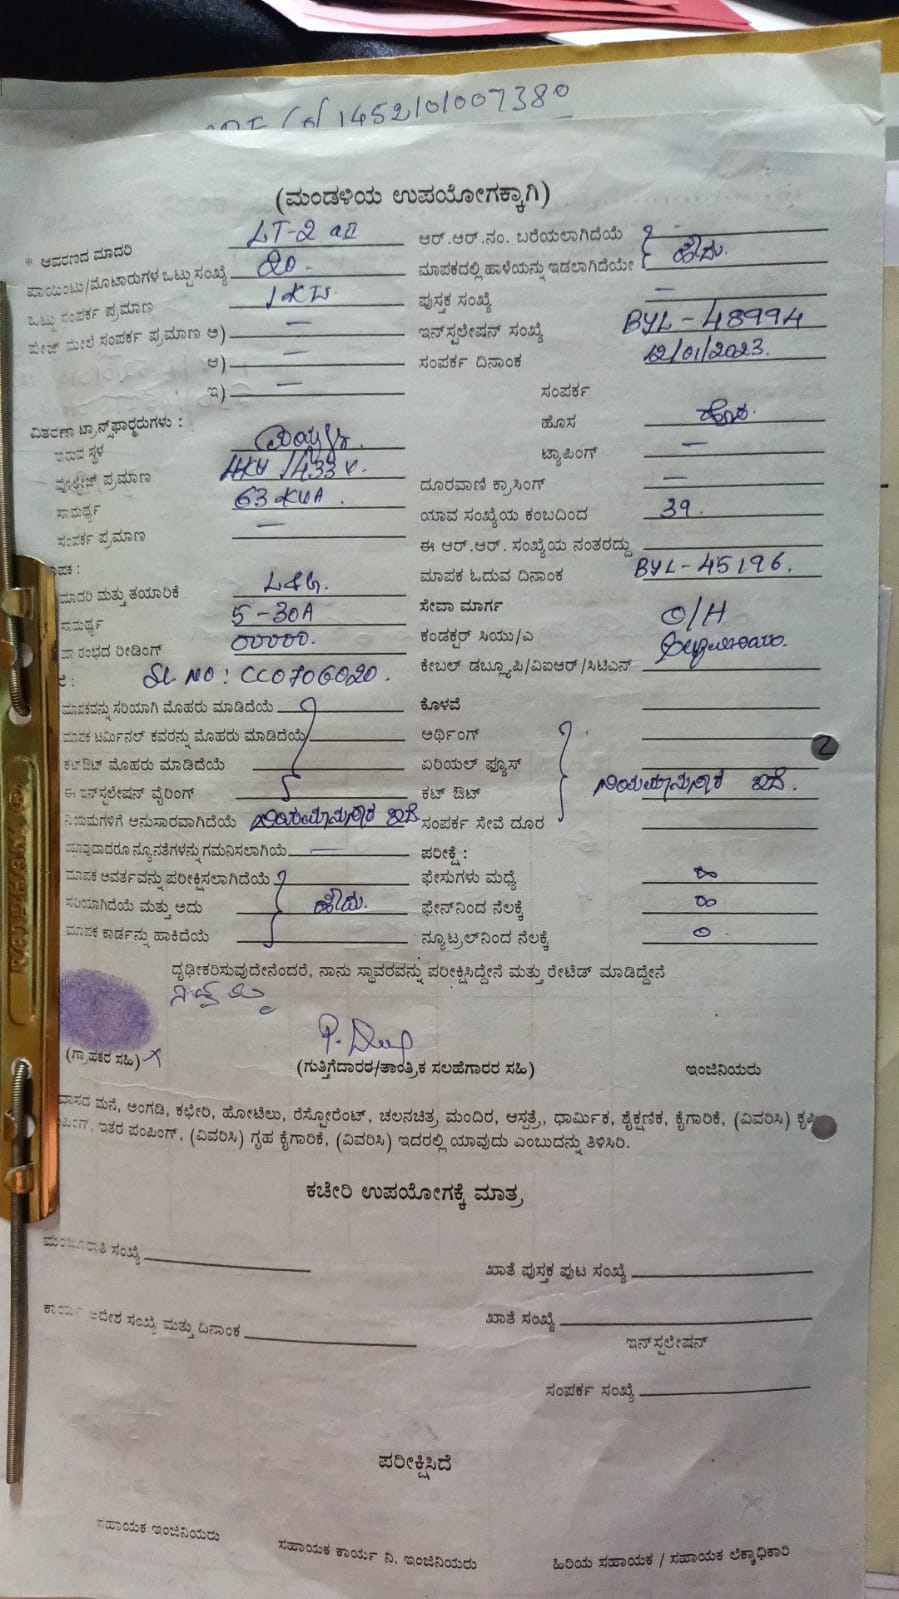 1452101007380
(ಮಂಡಳಿಯ ಉಪಯೋಗಕ್ಕಾಗಿ)
* ಆವರಣದ ಮಾದರಿ LT-2 aII
ಪಾಯಿಂಟು/ಮೋಟಾರುಗಳ ಒಟ್ಟು ಸಂಖ್ಯೆ 20 -
ಒಟ್ಟು ಸಂಪರ್ಕ ಪ್ರಮಾಣ 1KW.
ಫೇಜ್ ಮೇಲೆ ಸಂಪರ್ಕ ಪ್ರಮಾಣ ಅ) —
ಆ) —
ಇ) —
ವಿತರಣಾ ಟ್ರಾನ್ಸ್‌ಫಾರ್ಮರುಗಳು :
ಇರುವ ಸ್ಥಳ
ವೋಲ್ಟೇಜ್ ಪ್ರಮಾಣ 11KV /433 V.
ಸಾಮರ್ಥ್ಯ 63 KVA .
ಸಂಪರ್ಕ ಪ್ರಮಾಣ —
ಮಾದರಿ ಮತ್ತು ತಯಾರಿಕೆ L&G.
ಸಾಮರ್ಥ್ಯ 5-30A
ಪ್ರಾರಂಭದ ರೀಡಿಂಗ್ 00000.
SL NO : CC0706020 .
ಮಾಪಕವನ್ನು ಸರಿಯಾಗಿ ಮೊಹರು ಮಾಡಿದೆಯೆ
ಮಾಪಕ ಟರ್ಮಿನಲ್ ಕವರನ್ನು ಮೊಹರು ಮಾಡಿದೆಯೆ
ಕಟ್‌ಔಟ್ ಮೊಹರು ಮಾಡಿದೆಯೆ
ಈ ಇನ್‌ಸ್ಟಲೇಷನ್ ವೈರಿಂಗ್
ನಿಯಮಗಳಿಗೆ ಅನುಸಾರವಾಗಿದೆಯೆ ನಿಯಮಾನುಸಾರ ಇದೆ.
ಯಾವುದಾದರೂ ನ್ಯೂನತೆಗಳನ್ನು ಗಮನಿಸಲಾಗಿಯೆ —
ಮಾಪಕ ಆವರ್ತವನ್ನು ಪರೀಕ್ಷಿಸಲಾಗಿದೆಯೆ
ಸರಿಯಾಗಿದೆಯೆ ಮತ್ತು ಅದು ಹೌದು.
ಮಾಪಕ ಕಾರ್ಡನ್ನು ಹಾಕಿದೆಯೆ
ಆರ್.ಆರ್.ನಂ. ಬರೆಯಲಾಗಿದೆಯೆ
ಮಾಪಕದಲ್ಲಿ ಹಾಳೆಯನ್ನು ಇಡಲಾಗಿದೆಯೇ ಹೌದು.
ಪುಸ್ತಕ ಸಂಖ್ಯೆ —
ಇನ್‌ಸ್ಟಲೇಷನ್ ಸಂಖ್ಯೆ BYL-48994
ಸಂಪರ್ಕ ದಿನಾಂಕ 12/01/2023.
ಸಂಪರ್ಕ
ಹೊಸ ಹೊಸ.
ಟ್ಯಾಪಿಂಗ್ —
ದೂರವಾಣಿ ಕ್ರಾಸಿಂಗ್ —
ಯಾವ ಸಂಖ್ಯೆಯ ಕಂಬದಿಂದ 39.
ಈ ಆರ್.ಆರ್. ಸಂಖ್ಯೆಯ ನಂತರದ್ದು
ಮಾಪಕ ಓದುವ ದಿನಾಂಕ BYL-45196.
ಸೇವಾ ಮಾರ್ಗ O/H
ಕಂಡಕ್ಟರ್ ಸಿಯು/ಎ
ಕೇಬಲ್ ಡಬ್ಲ್ಯೂಪಿ/ವಿಐಆರ್/ಸಿಟಿಎಸ್
ಕೊಳವೆ
ಅರ್ಥಿಂಗ್
ಏರಿಯಲ್ ಫ್ಯೂಸ್
ಕಟ್ ಔಟ್ ನಿಯಮಾನುಸಾರ ಇದೆ.
ಸಂಪರ್ಕ ಸೇವೆ ದೂರ
ಪರೀಕ್ಷೆ :
ಫೇಸುಗಳು ಮಧ್ಯೆ ∞
ಫೇಸ್‌ನಿಂದ ನೆಲಕ್ಕೆ ∞
ನ್ಯೂಟ್ರಲ್‌ನಿಂದ ನೆಲಕ್ಕೆ 0
ದೃಢೀಕರಿಸುವುದೇನೆಂದರೆ, ನಾನು ಸ್ಥಾವರವನ್ನು ಪರೀಕ್ಷಿಸಿದ್ದೇನೆ ಮತ್ತು ರೇಟೆಡ್ ಮಾಡಿದ್ದೇನೆ
(ಗ್ರಾಹಕರ ಸಹಿ) (ಗುತ್ತಿಗೆದಾರರ/ತಾಂತ್ರಿಕ ಸಲಹೆಗಾರರ ಸಹಿ) ಇಂಜಿನಿಯರು
ವಾಸದ ಮನೆ, ಅಂಗಡಿ, ಕಛೇರಿ, ಹೋಟೆಲು, ರೆಸ್ಟೋರೆಂಟ್, ಚಲನಚಿತ್ರ ಮಂದಿರ, ಆಸ್ಪತ್ರೆ, ಧಾರ್ಮಿಕ, ಶೈಕ್ಷಣಿಕ, ಕೈಗಾರಿಕೆ, (ವಿವರಿಸಿ)
ಇತರ ಪಂಪಿಂಗ್, (ವಿವರಿಸಿ) ಗೃಹ ಕೈಗಾರಿಕೆ, (ವಿವರಿಸಿ) ಇದರಲ್ಲಿ ಯಾವುದು ಎಂಬುದನ್ನು ತಿಳಿಸಿರಿ.
ಕಚೇರಿ ಉಪಯೋಗಕ್ಕೆ ಮಾತ್ರ
ಮಂಜೂರಾತಿ ಸಂಖ್ಯೆ
ಖಾತೆ ಪುಸ್ತಕ ಪುಟ ಸಂಖ್ಯೆ
ಕಾರ್ಯ ಆದೇಶ ಸಂಖ್ಯೆ ಮತ್ತು ದಿನಾಂಕ
ಖಾತೆ ಸಂಖ್ಯೆ
ಇನ್‌ಸ್ಟಲೇಷನ್
ಸಂಪರ್ಕ ಸಂಖ್ಯೆ
ಪರೀಕ್ಷಿಸಿದೆ
ಸಹಾಯಕ ಇಂಜಿನಿಯರು ಸಹಾಯಕ ಕಾರ್ಯ ನಿ. ಇಂಜಿನಿಯರು ಹಿರಿಯ ಸಹಾಯಕ / ಸಹಾಯಕ ಲೆಕ್ಕಾಧಿಕಾರಿ